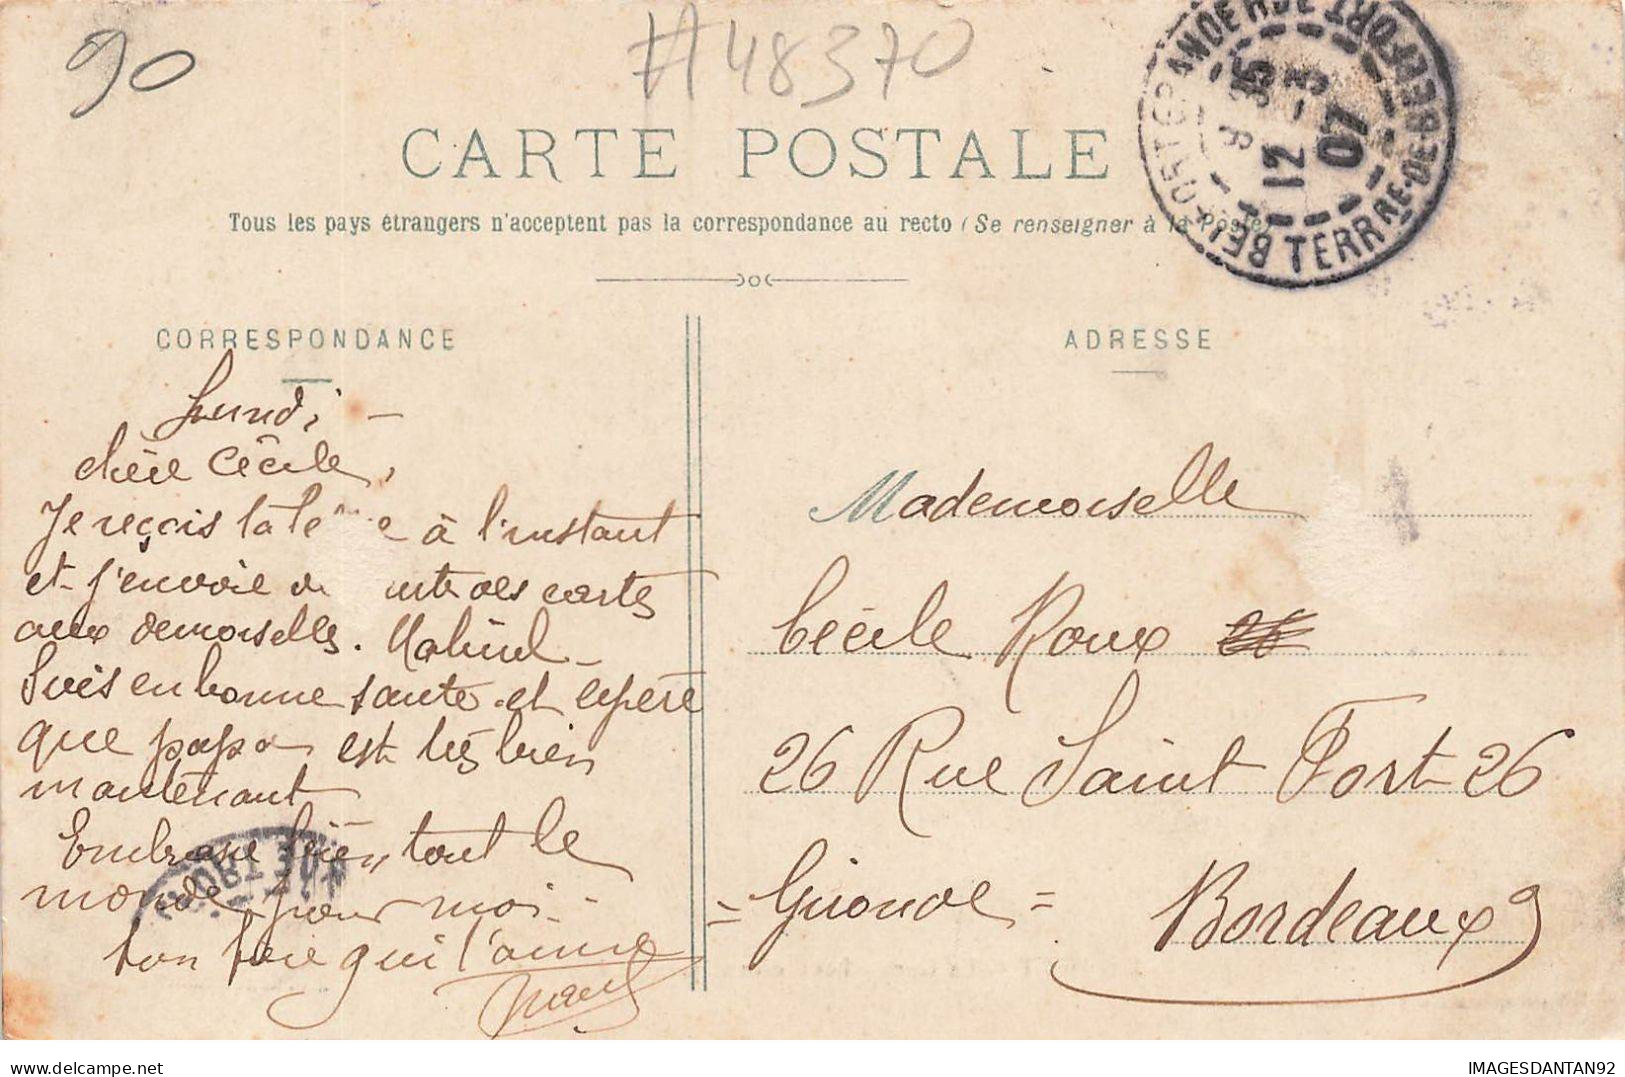 90
#48370
CARTE POSTALE
Tous les pays étrangers n'acceptent pas la correspondance au recto (Se renseigner à la Poste)
BELFORT GRANDE RUE
12 - 3
07
TERRRE DE BELFORT
CORRESPONDANCE
ADRESSE
Lundi -
chère Cécile,
Je reçois ta le e à l'instant
et j'envoie de suite des cartes
aux demoiselles.
Suis en bonne santé et espère
que papa est très bien
maintenant
Embrasse bien tout le
monde pour moi.
ton frère qui t'aime
Mademoiselle
Cécile Roux 26
26 Rue Saint Fort 26
= Gironde =
Bordeaux
IMAGESDANTAN92